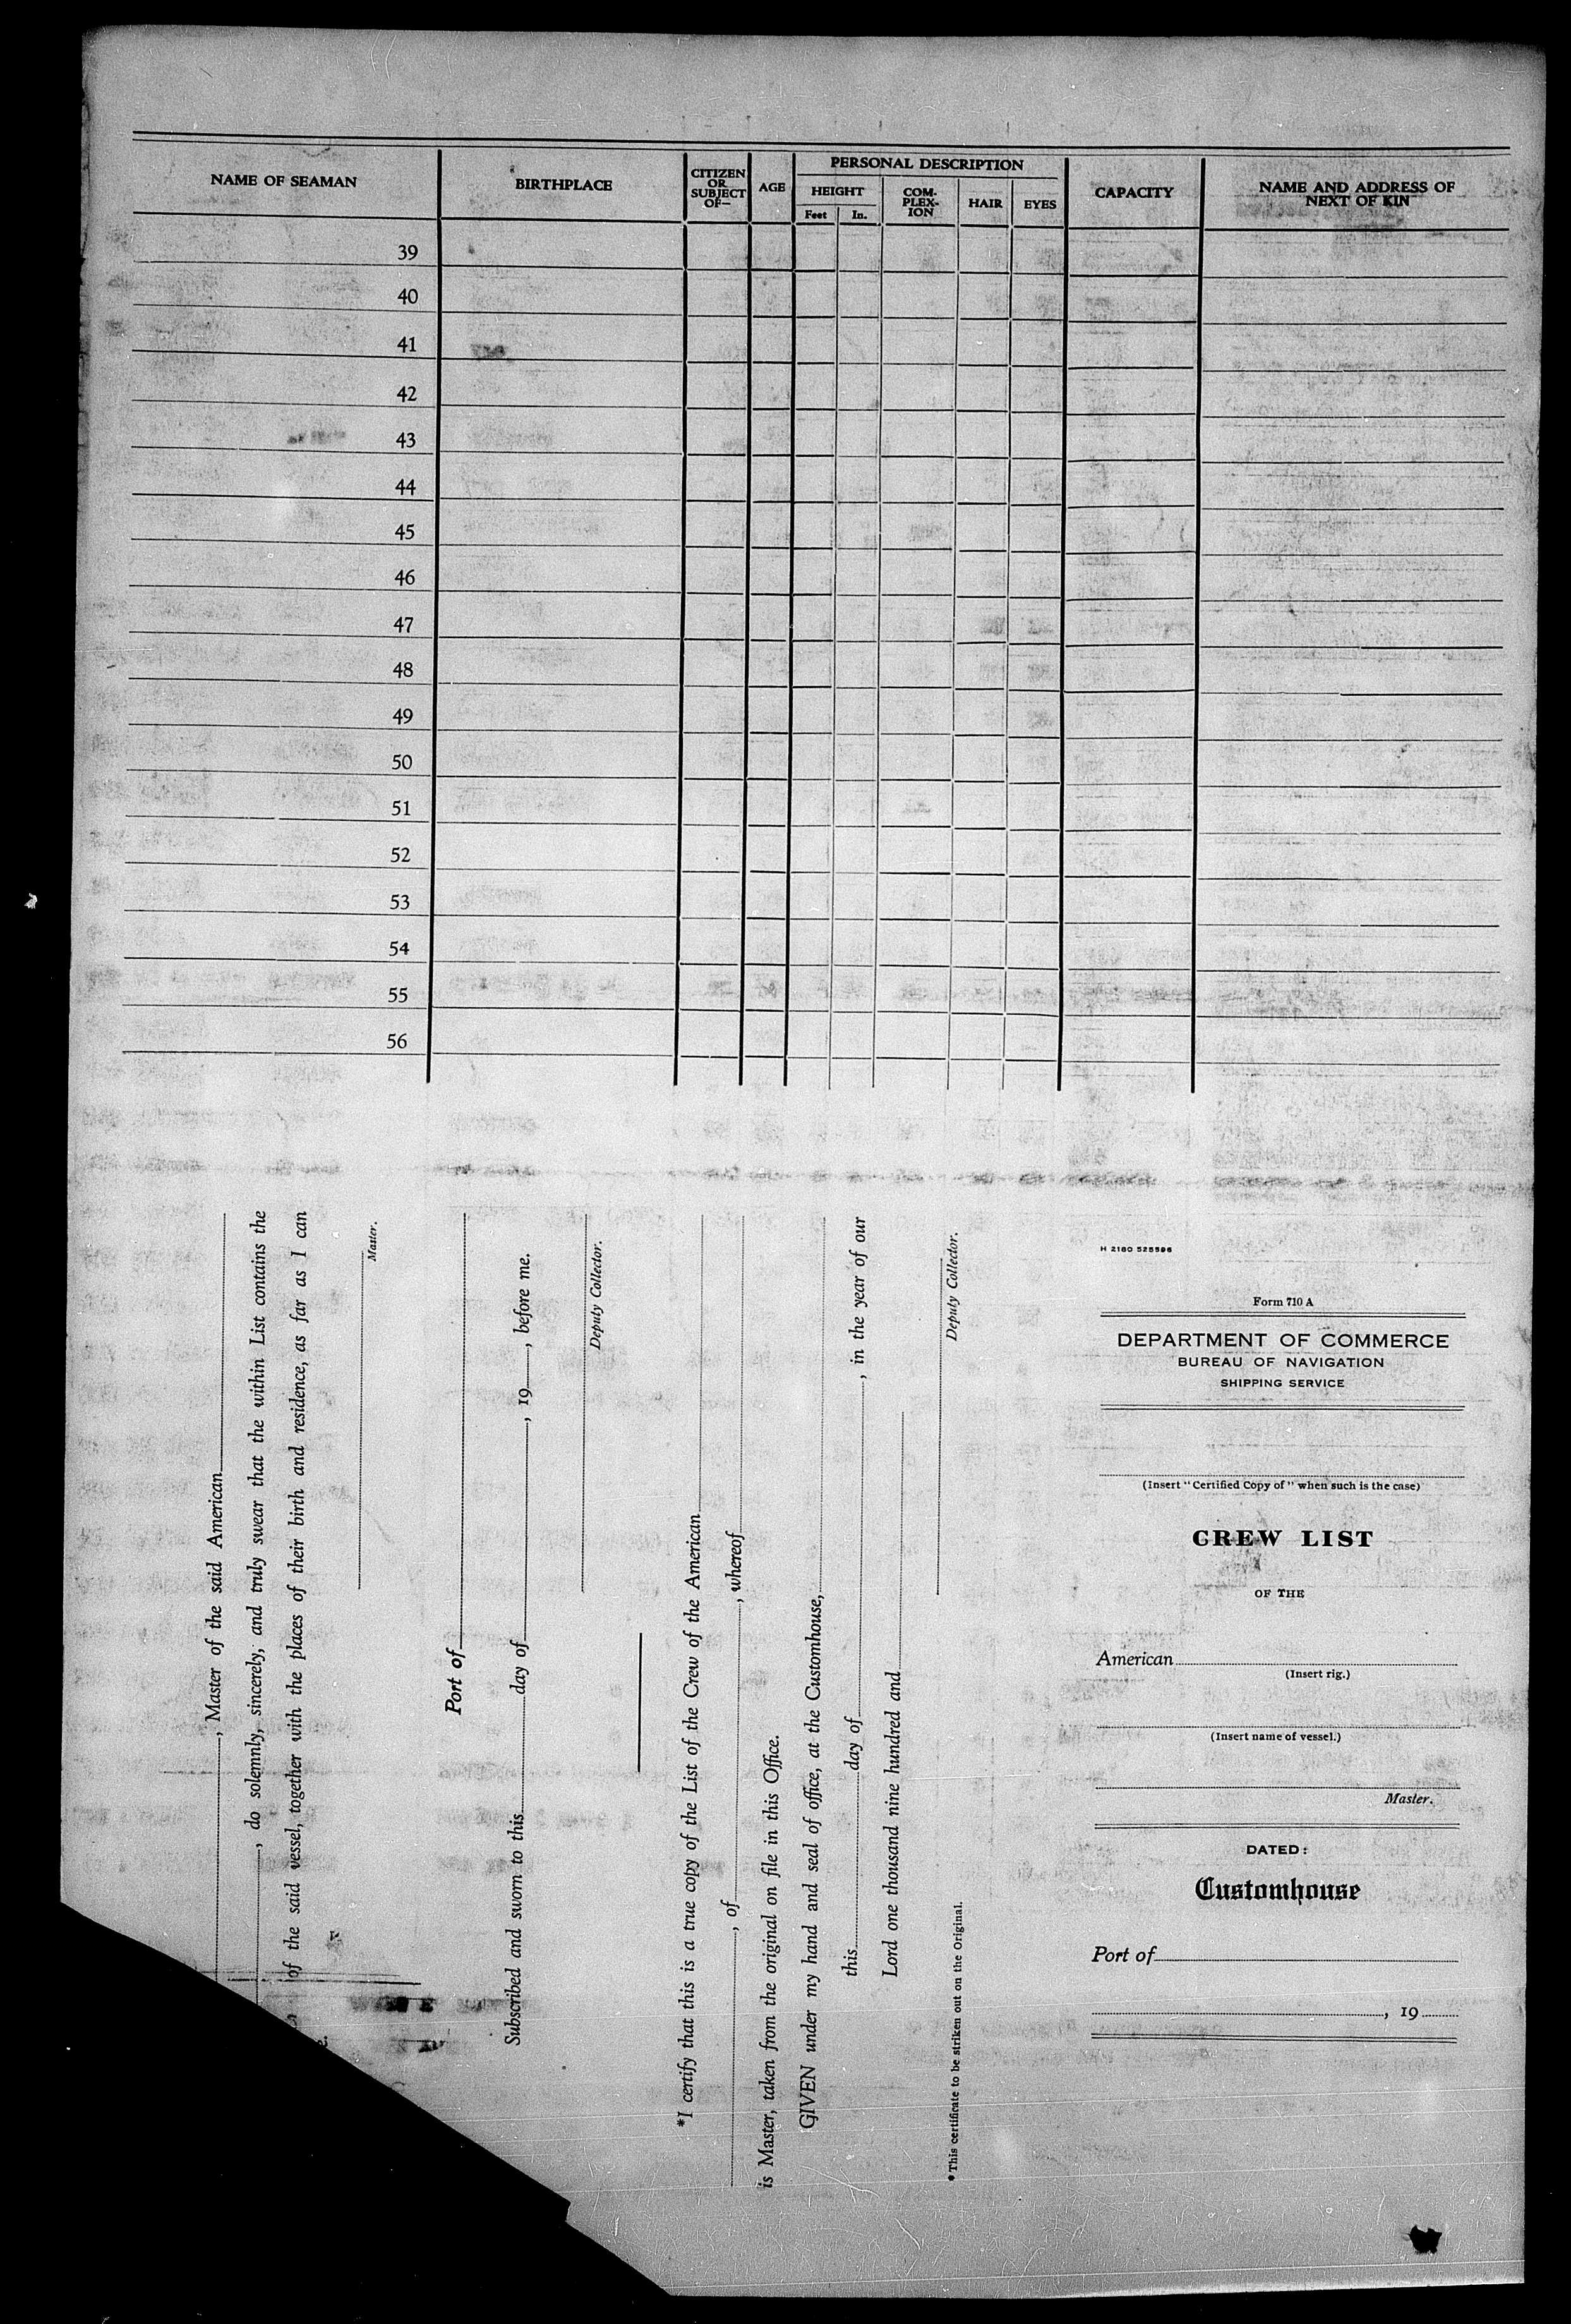 NAME OF SEAMAN BIRTHPLACE CITIZEN OR SUBJECT OF— AGE PERSONAL DESCRIPTION CAPACITY NAME AND ADDRESS OF NEXT OF KIN
HEIGHT COM-PLEX-ION HAIR EYES
Feet In.
39
40
41
42
43
44
45
46
47
48
49
50
51
52
53
54
55
56
, Master of the said American
, do solemnly, sincerely, and truly swear that the within List contains the
of the said vessel, together with the places of their birth and residence, as far as I can
Master.
Port of
Subscribed and sworn to this day of , 19 , before me.
Deputy Collector.
*I certify that this is a true copy of the List of the Crew of the American
, of , whereof
is Master, taken from the original on file in this Office.
GIVEN under my hand and seal of office, at the Customhouse,
this day of , in the year of our
Lord one thousand nine hundred and
Deputy Collector.
*This certificate to be striken out on the Original.
H 2180 525596
Form 710 A
DEPARTMENT OF COMMERCE
BUREAU OF NAVIGATION
SHIPPING SERVICE
(Insert "Certified Copy of" when such is the case)
CREW LIST
OF THE
American
(Insert rig.)
(Insert name of vessel.)
Master.
DATED:
Customhouse
Port of
, 19